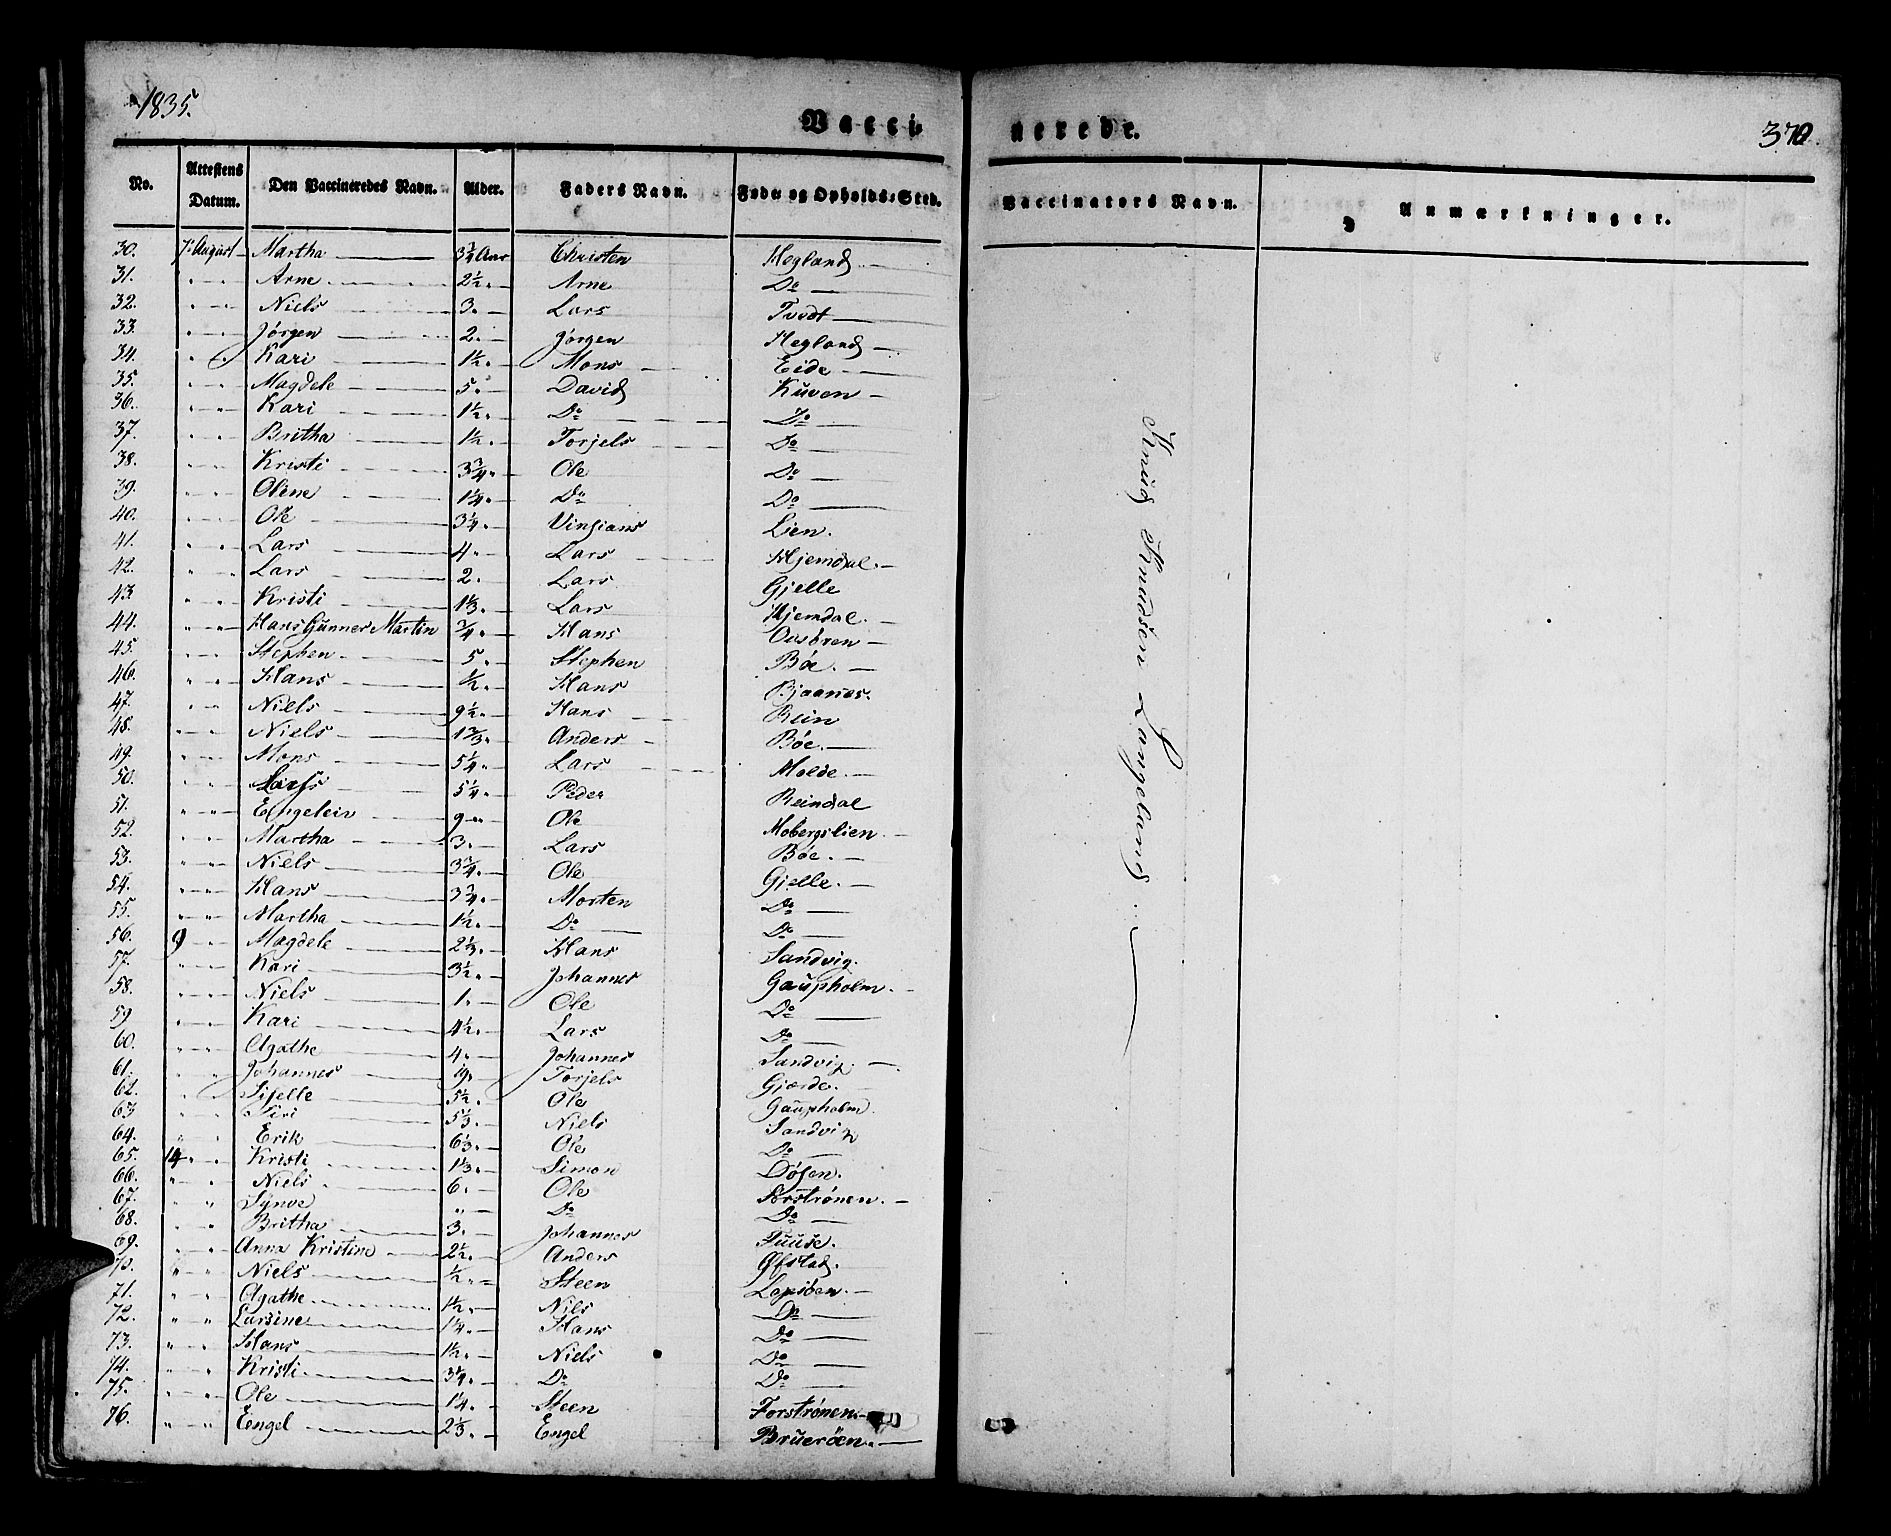 1835.
Vacci-
nerede.
370.
No. Attestens Datum. Den Vaccineredes Navn. Alder. Faders Navn. Føde og Opholds-Sted. Vaccinators Navn. Anmærkninger.
30. 7de August Martha 3¼ Aar Christen Hegland
31. " " Arne 2½ " Arne Do
32. " " Niels 3 " Lars Tvedt
33. " " Jørgen 2 " Jørgen Hegland
34. " " Kari 1½ " Mons Eide
35. " " Magdele 5 " David Kuven
36. " " Kari 1½ " Do Do
37. " " Britha 1½ " Torjels Do
38. " " Kristi 3¾ " Ole Do
39. " " Oline 1¼ " Do Do
40. " " Ole 3¼ " Vingians Lien.
41. " " Lars 4 " Lars Hjemdal.
42. " " Lars 2 " Lars Gjelle
43. " " Kristi 1⅓ " Lars Hjemdal.
44. " " Hans Gunner Martin ¾ " Hans Ousøren
45. " " Stephen 5 " Stephen Bøe.
46. " " Hans ½ " Hans Bjaanes.
47. " " Niels 9½ " Hans Rein
48. " " Niels 1⅔ " Anders Bøe.
49. " " Mons 5¼ " Lars Molde.
50. " " Lars 5¼ " Peder Reindal
51. " " Engelein 9 " Ole Mobergslien.
52. " " Martha 3 " Lars Bøe.
53. " " Niels 3¾ " Ole Gjelle.
54. " " Hans 3¾ " Morten Do
55. " " Martha 1½ " Do Do
56. 9 " Magdele 2⅓ " Hans Sandvig.
57. " " Kari 3½ " Johannes Gaupholm.
58. " " Niels 1 " Ole Do
59 " " Kari 4½ " Lars Do
60. " " Agathe 4 " Johannes Sandvig.
61. " " Johannes 19 " Torjels Gjærde.
62. " " Siselle 5½ " Ole Gaupholm.
63 " " Siri 5⅓ " Niels Sandvig
64. " " Erik 6⅓ " Ole Do
65. 14 " Kristi 1⅓ " Simon Døsen.
66. " " Niels 6 " Ole Forstrønen.
67. " " Synve " Do Do
68. " " Britha 3 " Johannes Tuuse.
69. " " Anna Kristine 2½ " Anders Øfstad.
70. " " Niels ½ " Steen Lepsøen.
71. " " Agathe 1½ " Nils Do
72. " " Larsine 1¼ " Hans Do
73. " " Hans 1½ " Niels Do
74. " " Kristi 3¼ " Do Do
75. " " Ole 1¼ " Steen Forstrønen
76. " " Engel 2⅓ " Engel Bruerøen.
Knud Knudsen Langeland.